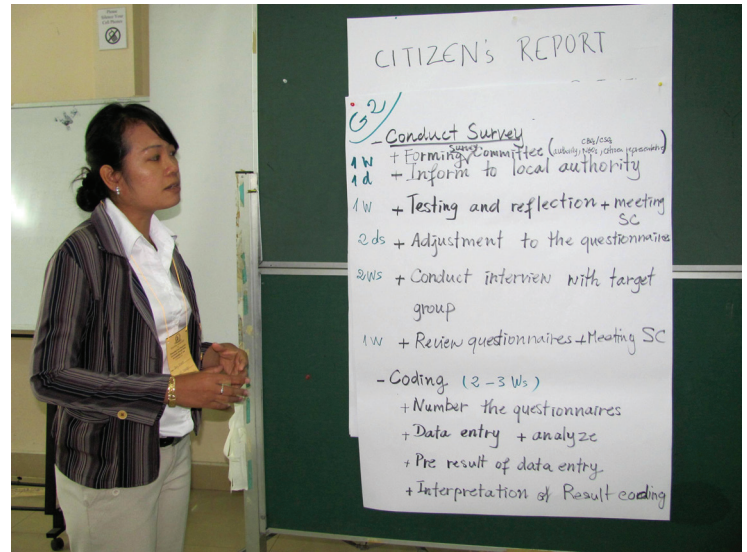 Please
CITIZEN's REPORT
G2
- Conduct Survey
1w + Forming Survey Committee (authority, NGOs, CBOs/CSOs, citizen representative)
1d + Inform to local authority
1w + Testing and reflection + meeting SC
2ds + Adjustment to the questionnaires
2Ws + Conduct interview with target
group
1w + Review questionnaires + Meeting SC
- Coding (2-3 Ws)
+ Number the questionnaires
+ Data entry + analyze
+ Pre result of data entry
+ Interpretation of Result coding